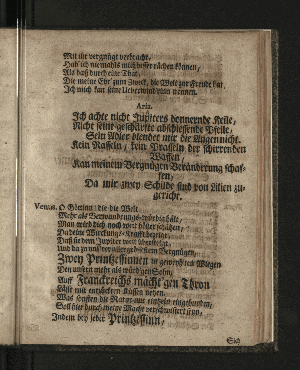 Mit ihr vergnügt verbracht,
Hab' ich niemahls mich besser rächen können,
Als daß durch eine That,
Die meine Ehr' zum Zweck, die Welt zur Freude hat,
Ich mich kan seine Ueberwinderin nennen.
Aria.
Ich achte nicht Jupiters donnernde Keile,
Nicht seine geschärfte abschiessende Pfeile,
Sein Adler blendet mir die Augen nicht.
Kein Rasseln, kein Prasseln der schirrenden
Waffen,
Kan meinem Vergnügen Veränderung schaf-
fen,
Da mir zwey Schilde sind von Lilien zu-
gericht.
Venus. O Göttin! die die Welt
Mehr als Verwunderungs-würdig hält,
Man wird dich noch weit höher schätzen,
Da deine Würckungs-Krafft
Daß sie dem Jupiter weit
Und da zu
Zwey Printzeßinnen in
Den
Auff Franckreichs mächt'gen Thron
Läßt mit entzückten Küssen
Was sonsten die Natur nur eintzeln eingebunden,
Soll hier durch meine Macht verschwistert seyn,
Indem bey jeder Printzeßinn,
Sich